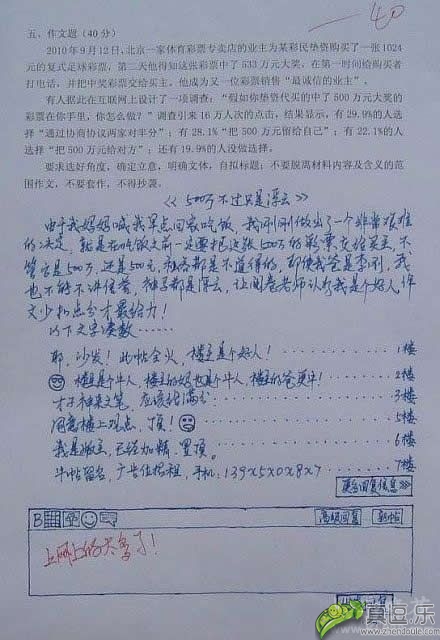 -40
五、作文题（40分）
2010年9月12日,北京一家体育彩票专卖店的业主为某彩民垫资购买了一张1024
元的复式足球彩票，第二天他得知这张彩票中了533万元大奖，在第一时间给购买者
打电话，并把中奖彩票交给买主。他成为又一位彩票销售“最诚信的业主”。
有人据此在互联网上设计了一项调查：“假如你垫资代买的中了500万元大奖的
彩票在你手里，你怎么做？”调查引来16万人次的点击，结果显示，有29.9%的人选
择“通过协商协议两家对半分”；有28.1%“把500万元留给自己”；有22.1%的人
选择“把500万元给对方”；还有19.9%的人没做选择。
要求选好角度，确定立意，明确文体，自拟标题；不要脱离材料内容及含义的范
围作文，不要套作，不得抄袭。
《500万不过只是浮云》
由于我妈妈喊我早点回家吃饭，我刚刚做出了一个非常艰难
的决定，就是在吃饭之前一定要把这张500万的彩票交给买主，不
管它是500万，还是500元，私吞都是不道得的，即使我爸是李刚，我
也不能不讲信誉，神马都是浮云，让阅卷老师认为我是个好人作
文少扣点分才最给力！
以下文字凑数……
耶，沙发！此帖会火，楼主是个好人！ 1楼
楼主是个牛人，楼主的妈也是个牛人，楼主的爸更牛！ 2楼
才子神来之笔，应该给满分 3楼
同意楼上观点，顶！ 5楼
我是版主，已经加精，置顶。 6楼
牛帖留名，广告位招租，手机：139x5x0x8x7 7楼
更多回复信息>>
B 高级回复 新帖
上网上的太多了！
真逗乐
www.zhendoule.com